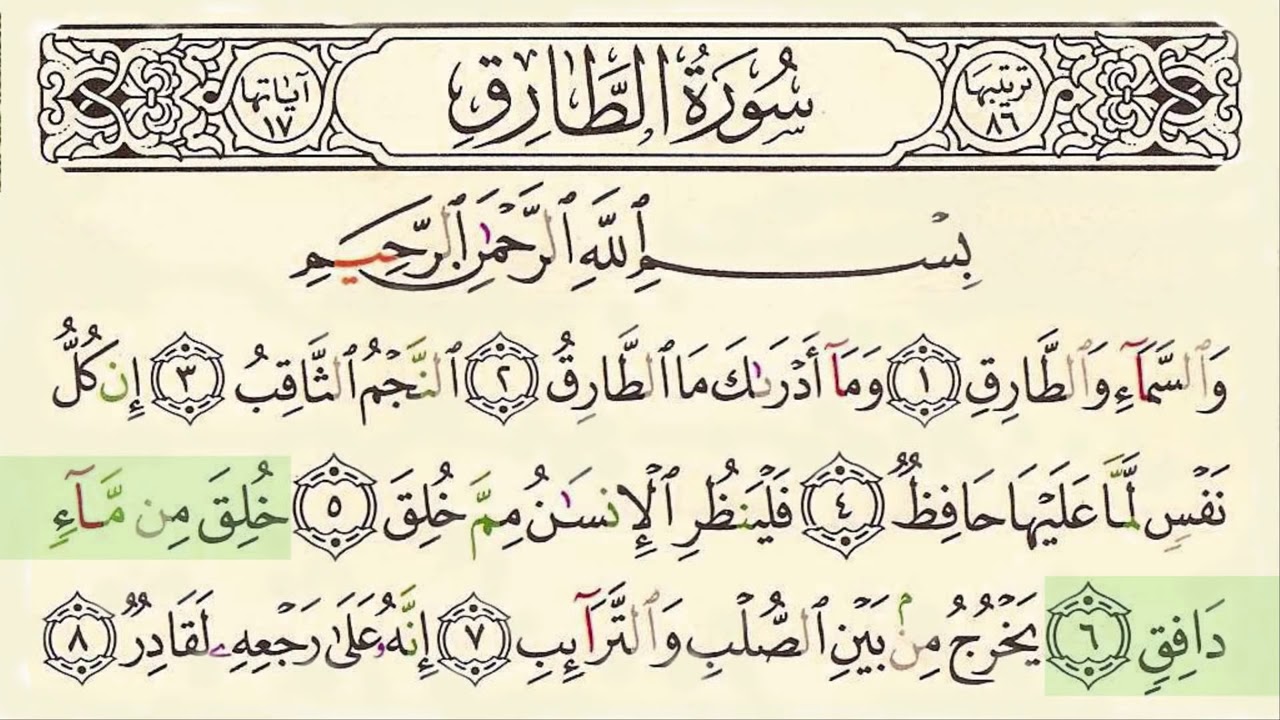 ترتيبها ٨٦ سُورَةُ الطَّارِقِ آياتها ١٧
بِسْمِ ٱللَّهِ ٱلرَّحْمَٰنِ ٱلرَّحِيمِ
وَٱلسَّمَآءِ وَٱلطَّارِقِ ١ وَمَآ أَدْرَىٰكَ مَا ٱلطَّارِقُ ٢ ٱلنَّجْمُ ٱلثَّاقِبُ ٣ إِن كُلُّ
نَفْسٍ لَّمَّا عَلَيْهَا حَافِظٌ ٤ فَلْيَنظُرِ ٱلْإِنسَٰنُ مِمَّ خُلِقَ ٥ خُلِقَ مِن مَّآءٍ
دَافِقٍ ٦ يَخْرُجُ مِنۢ بَيْنِ ٱلصُّلْبِ وَٱلتَّرَآئِبِ ٧ إِنَّهُۥ عَلَىٰ رَجْعِهِۦ لَقَادِرٌ ٨